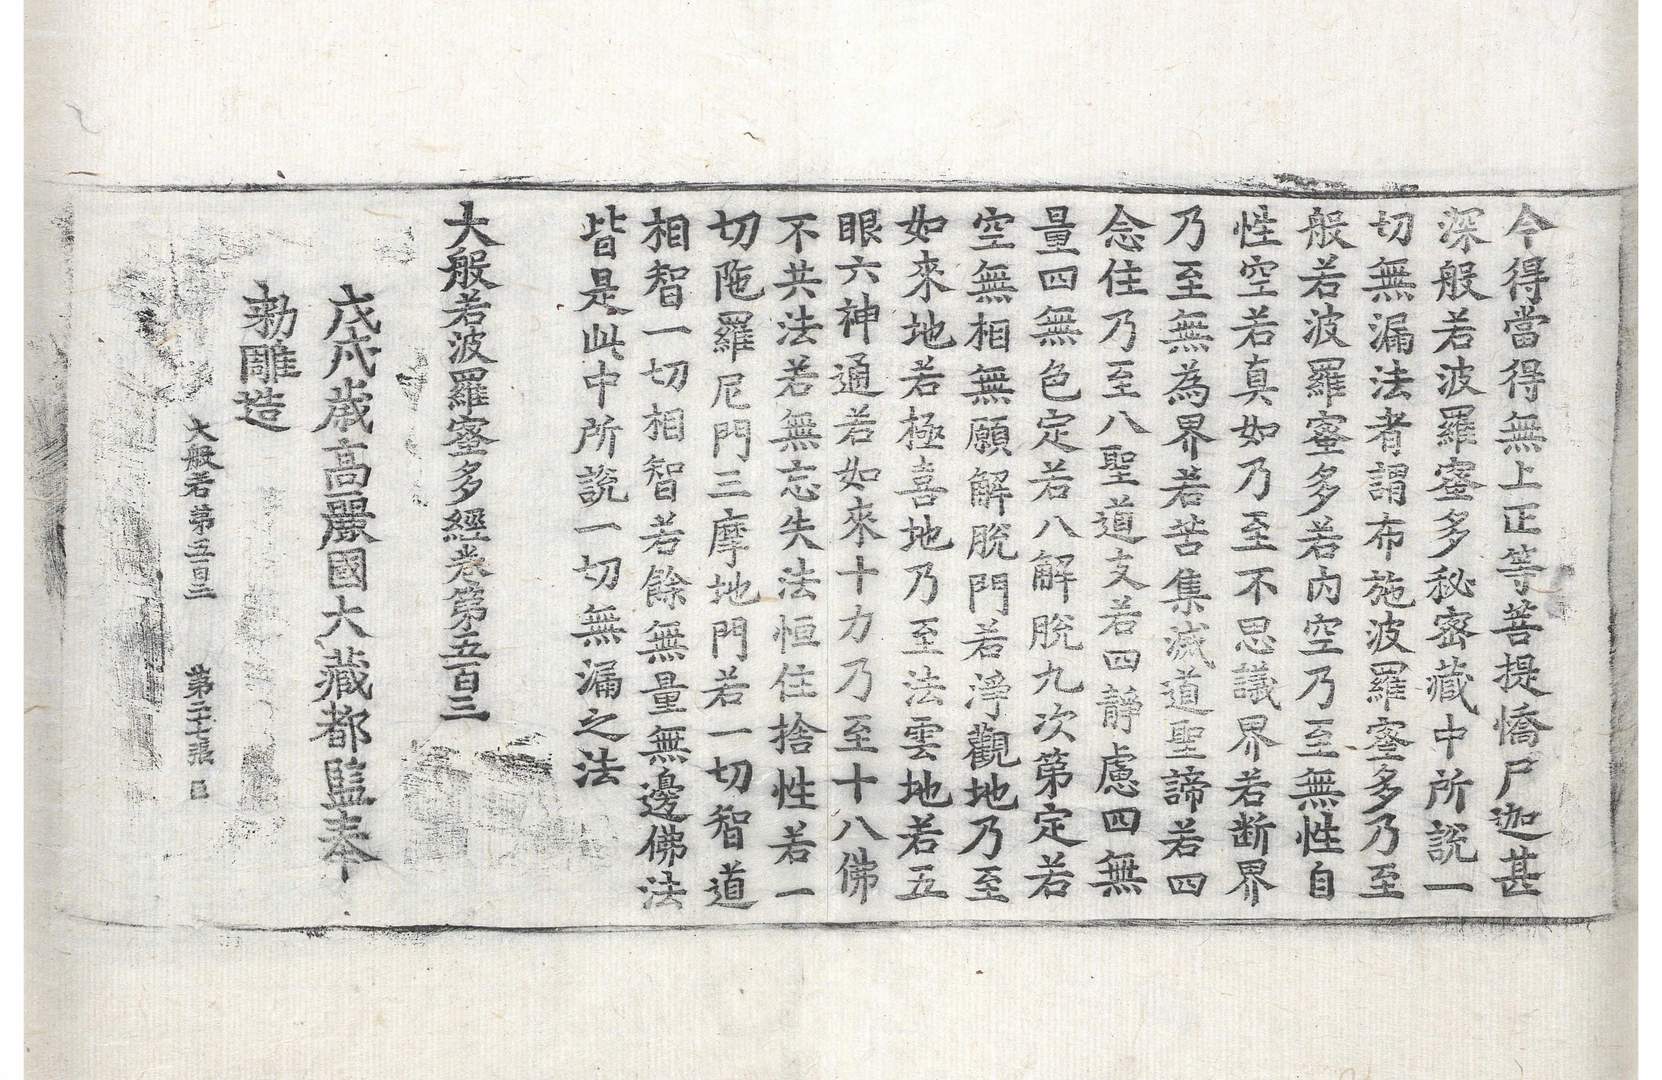 今得當得無上正等菩提憍尸迦甚
深般若波羅蜜多秘密藏中所說一
切無漏法者謂布施波羅蜜多乃至
般若波羅蜜多若內空乃至無性自
性空若真如乃至不思議界若斷界
乃至無為界若苦集滅道聖諦若四
念住乃至八聖道支若四靜慮四無
量四無色定若八解脫九次第定若
空無相無願解脫門若淨觀地乃至
如來地若極喜地乃至法雲地若五
眼六神通若如來十力乃至十八佛
不共法若無忘失法恒住捨性若一
切陁羅尼門三摩地門若一切智道
相智一切相智若餘無量無邊佛法
皆是此中所說一切無漏之法
大般若波羅蜜多經卷第五百三
戊戌歲高麗國大藏都監奉
勅雕造
大般若第五百三 第二十七張